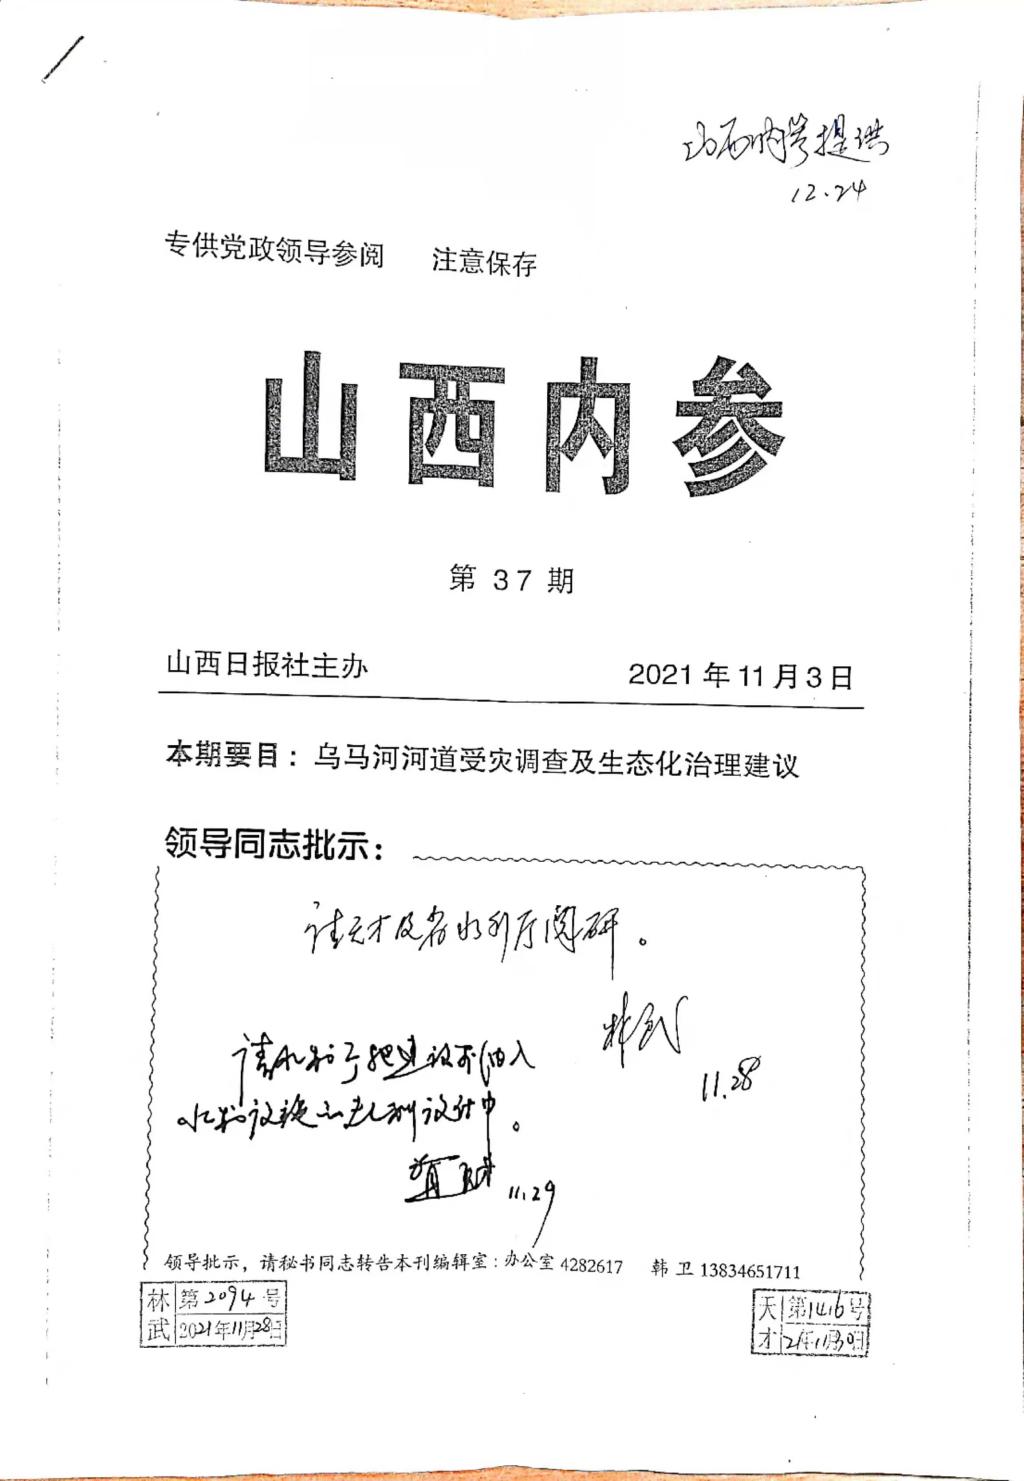 山西内参提供
12.24
专供党政领导参阅 注意保存
山西内参
第 37 期
山西日报社主办 2021年11月3日
本期要目：乌马河河道受灾调查及生态化治理建议
领导同志批示：
请天才及省水利厅阅研。
林武
11.28
请水利厅把建议
11.29
领导批示，请秘书同志转告本刊编辑室：办公室 4282617 韩卫 13834651711
林武 第2094号
2021年11月28日
天才 第1416号
21年11月30日